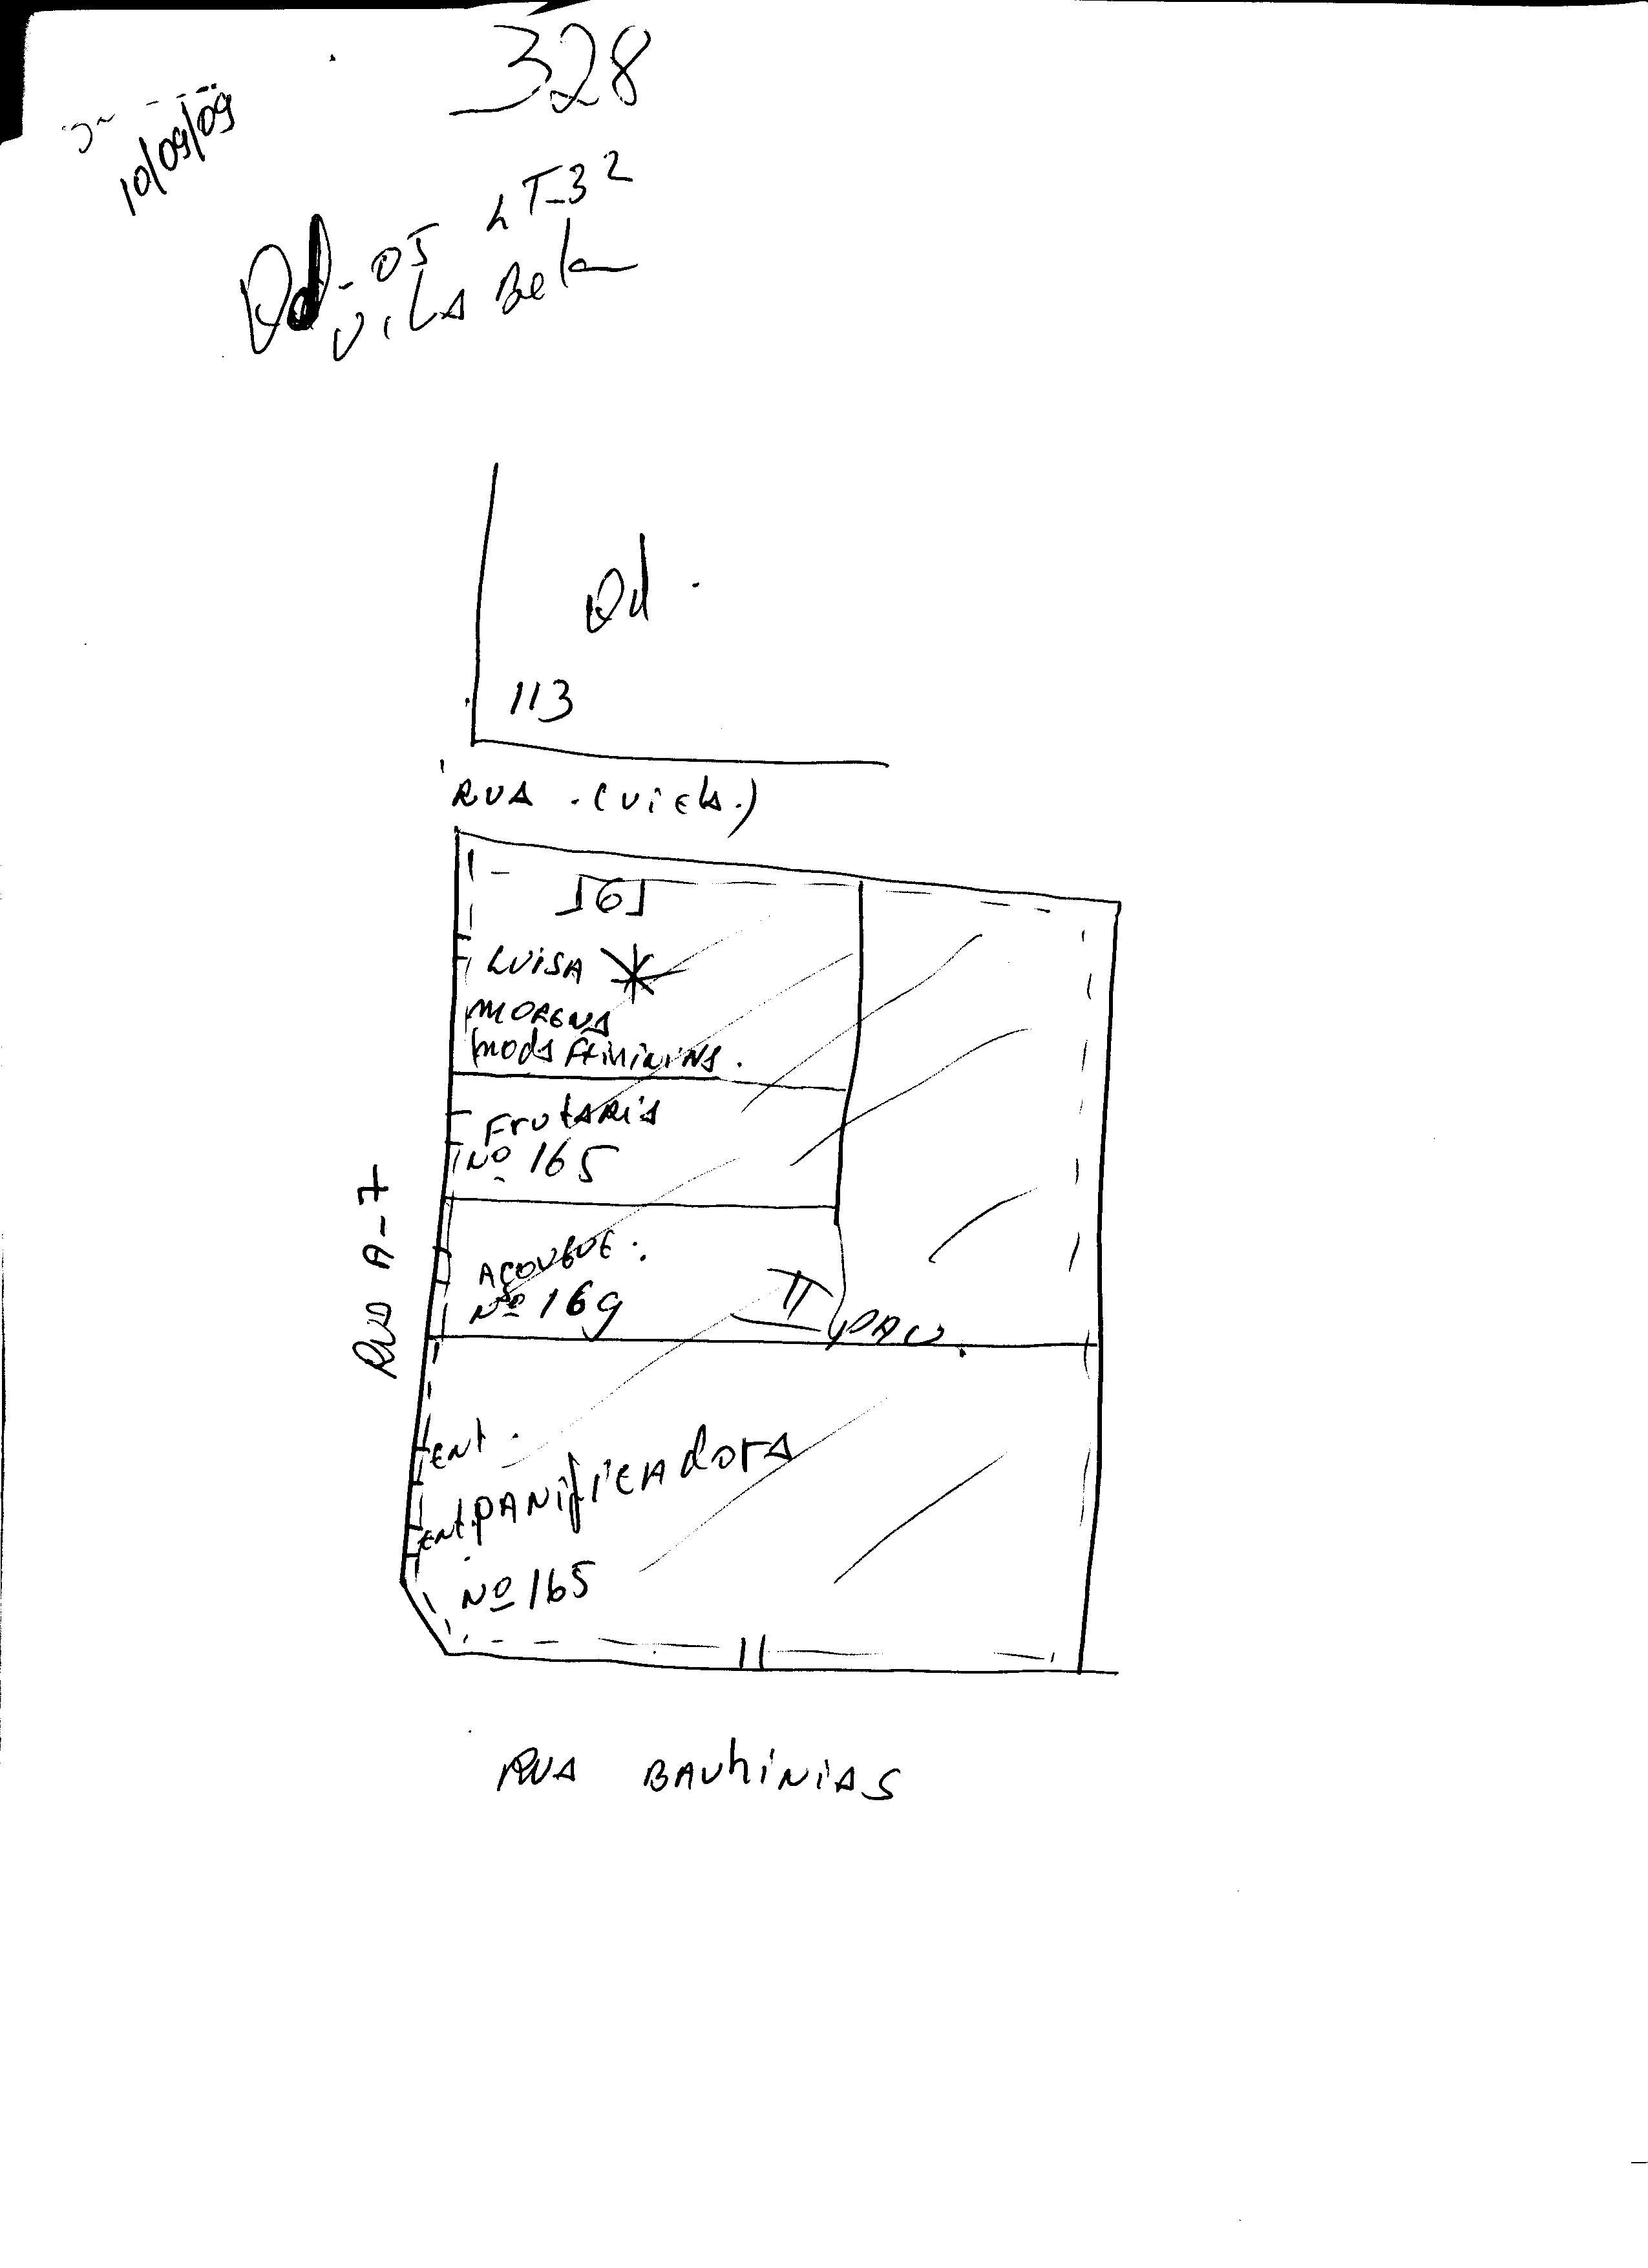 328
10/09/09
Qd-05 LT-32
Vila Bela
Qd.
113
RUA. (Viela.)
161
LUISA
MORENA
MODA FEMININA.
FrutARiA
Nº 165
AÇOUGUE.
Nº 169
RUA A-7
ent.
ent. PANificadora
Nº 165
RUA BAUhiNiAS